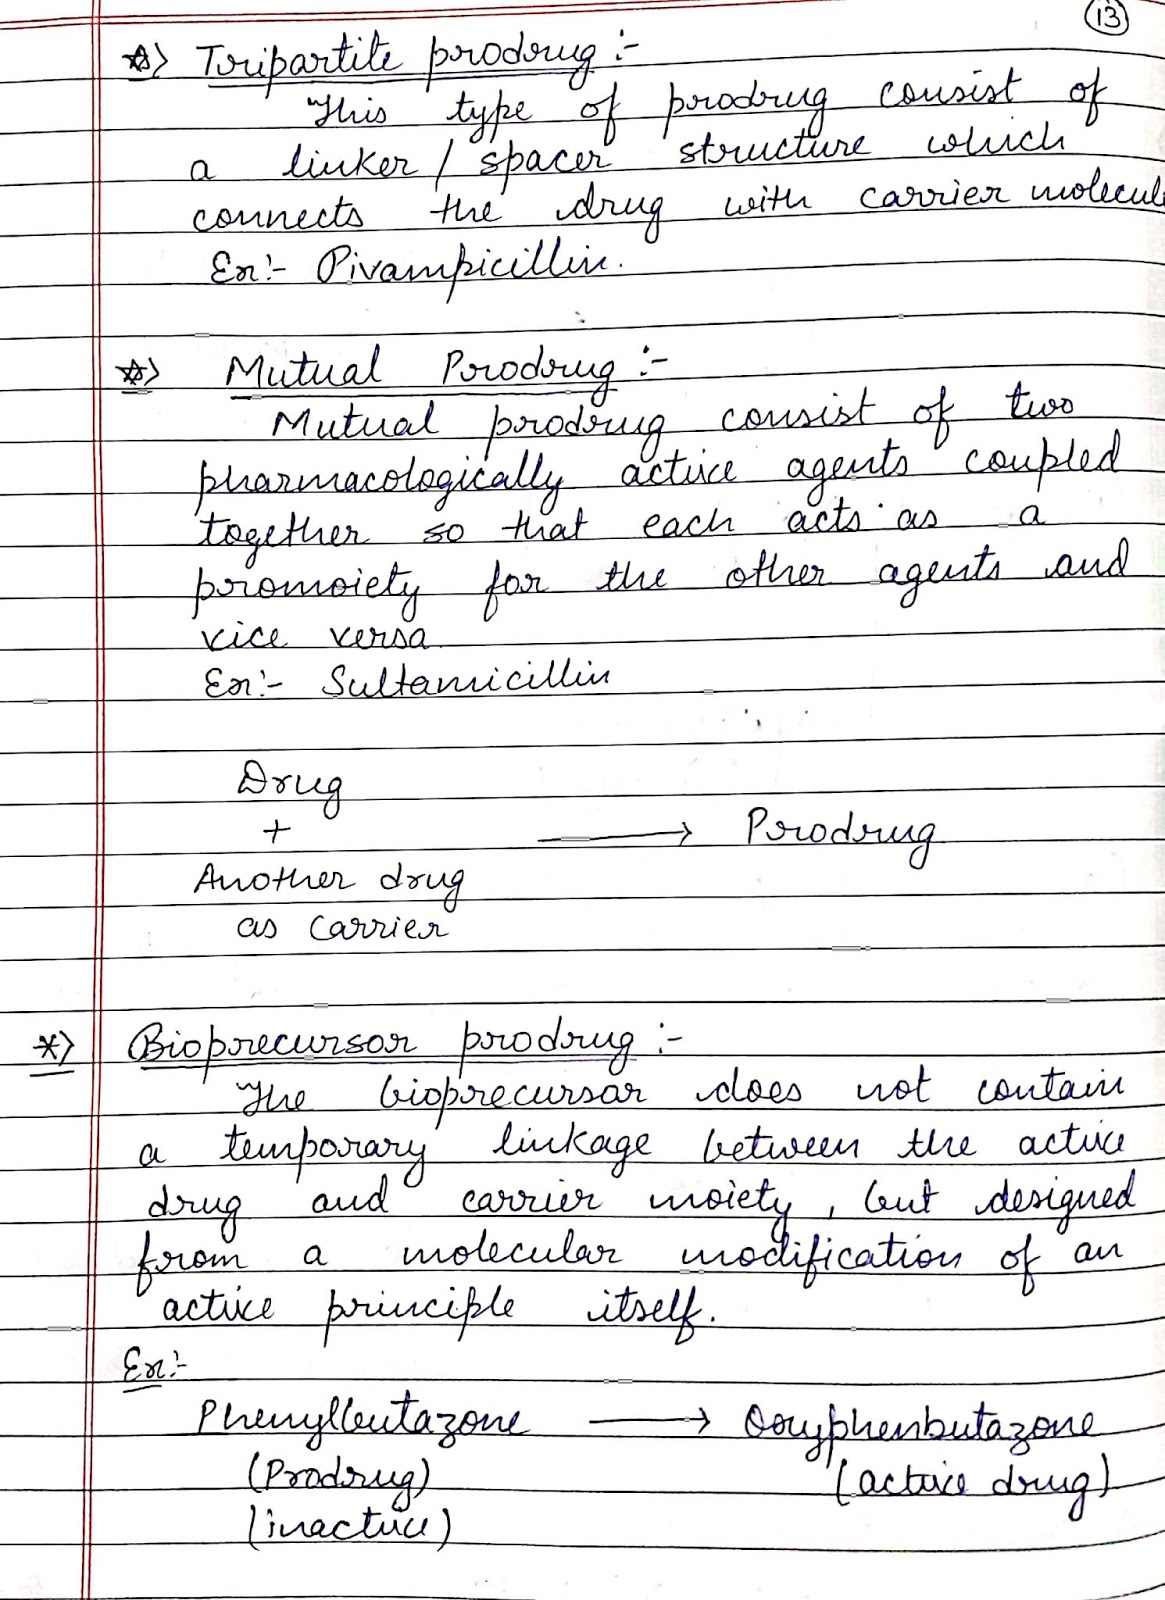 13
☆> Tripartite prodrug :-
This type of prodrug consist of
a linker / spacer structure which
connects the drug with carrier molecul
Ex:- Pivampicillin.
☆> Mutual Prodrug :-
Mutual prodrug consist of two
pharmacologically active agents coupled
together so that each acts as a
promoiety for the other agents and
vice versa
Ex:- Sultamicillin
Drug
+
Another drug
as carrier
⟶ Prodrug
*> Bioprecursor prodrug :-
The bioprecursar does not contain
a temporary linkage between the active
drug and carrier moiety, but designed
from a molecular modification of an
active principle itself.
Ex:-
Phenylbutazone ⟶ Oxyphenbutazone
(Prodrug) (active drug)
(inactive)